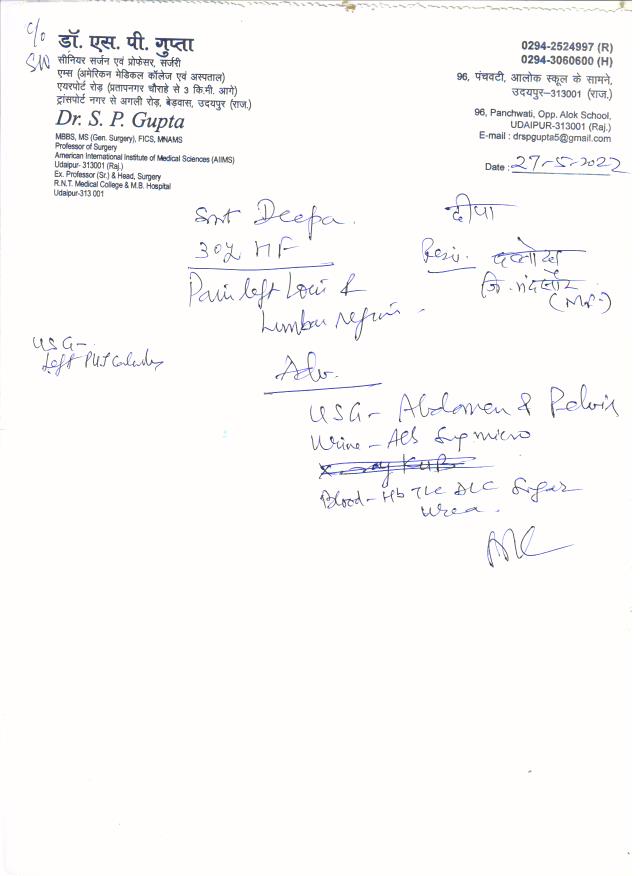 C/o
SW
डॉ. एस. पी. गुप्ता
सीनियर सर्जन एवं प्रोफेसर, सर्जरी
एम्स (अमेरिकन मेडिकल कॉलेज एवं अस्पताल)
एयरपोर्ट रोड़ (प्रतापनगर चौराहे से 3 कि.मी. आगे)
ट्रांसपोर्ट नगर से अगली रोड़, बेड़वास, उदयपुर (राज.)
Dr. S. P. Gupta
MBBS, MS (Gen. Surgery), FICS, MNAMS
Professor of Surgery
American International Institute of Medical Sciences (AIIMS)
Udaipur- 313001 (Raj.)
Ex. Professor (Sr.) & Head, Surgery
R.N.T. Medical College & M.B. Hospital
Udaipur-313 001
0294-2524997 (R)
0294-3060600 (H)
96, पंचवटी, आलोक स्कूल के सामने,
उदयपुर–313001 (राज.)
96, Panchwati, Opp. Alok School,
UDAIPUR-313001 (Raj.)
E-mail : drspgupta5@gmail.com
Date : 27-5-2022
Smt Deepa.
दीपा
30y HF
Resi.
जि. मंदसौर
(M.P.)
Pain left Loin &
Lumbar region.
USG-
Left PUJ Calculus
Adv.
USG- Abdomen & Pelvis
Urine - Alb Sug micro
X-ray KUB
Blood- Hb TLC DLC Sugar
Urea.